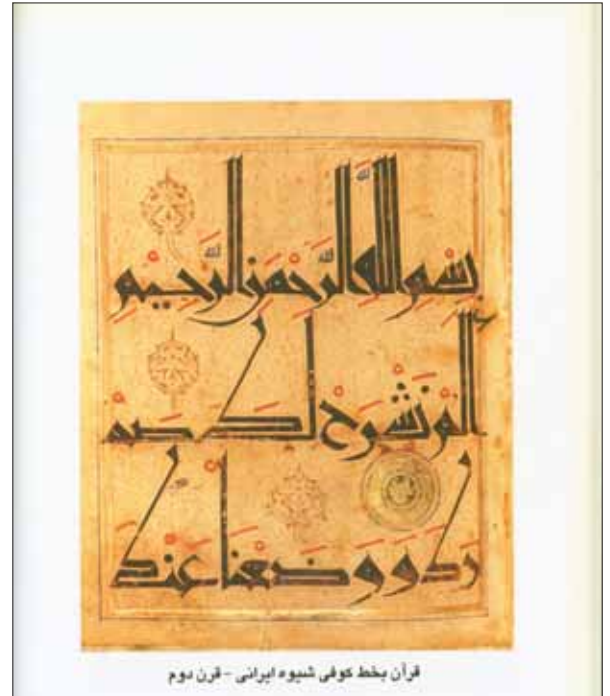 بِسْمِ اللَّهِ الرَّحْمَنِ الرَّحِيمِ
أَلَمْ نَشْرَحْ لَكَ صَدْ
رَكَ وَوَضَعْنَا عَنْكَ
قرآن بخط کوفی شیوه ایرانی - قرن دوم